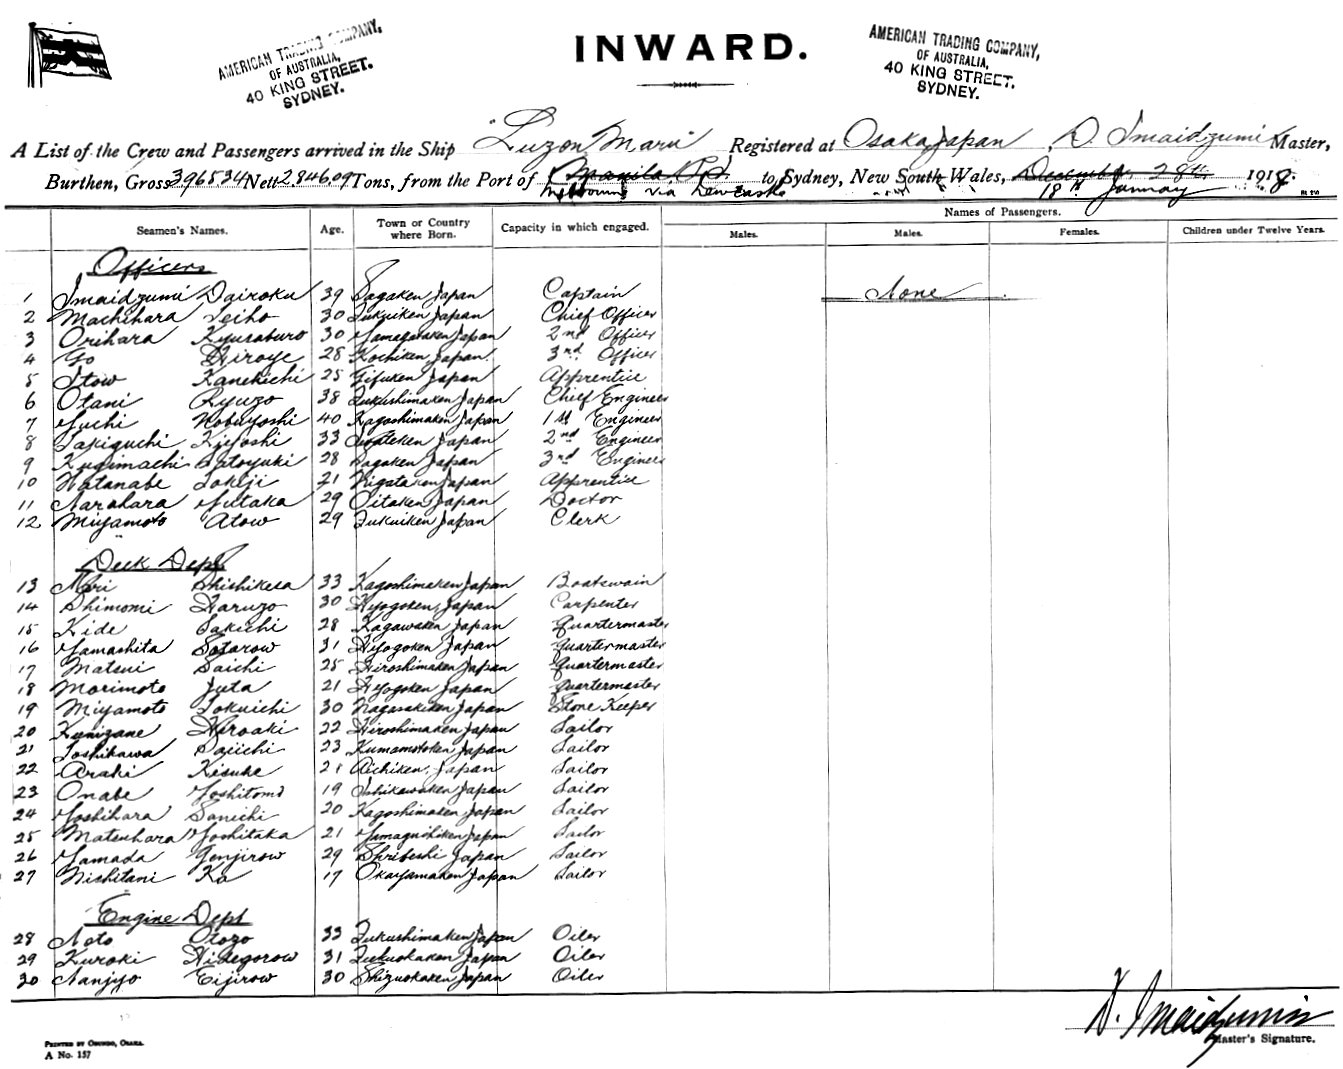 AMERICAN TRADING COMPANY,
OF AUSTRALIA,
40 KING STREET.
SYDNEY.
INWARD.
AMERICAN TRADING COMPANY,
OF AUSTRALIA,
40 KING STREET.
SYDNEY.
A List of the Crew and Passengers arrived in the Ship "Luzon Maru" Registered at Osaka, Japan, D. Imaidzumi Master,
Burthen, Gross 3965.34 Nett 2,846.09 Tons, from the Port of Manila to Sydney, New South Wales, December 28th 1918.
Melbourne via Newcastle 18th January
Names of Passengers.
Seamen's Names. Age. Town or Country where Born. Capacity in which engaged. Males. Males. Females. Children under Twelve Years.
Officers
1 Imaidzumi Dairoku 39 Sagaken Japan Captain None
2 Machihara Seiho 30 Fukuiken Japan Chief Officer
3 Orihara Kyusaburo 30 Yamagataken Japan 2nd Officer
4 Go Hiroye 28 Kochiken Japan. 3rd Officer
5 Itow Kanekichi 25 Gifuken Japan Apprentice
6 Otani Ryuzo 38 Fukushimaken Japan Chief Engineer
7 Yuchi Nobuyoshi 40 Kagoshimaken Japan 1st Engineer
8 Takiguchi Kiyoshi 33 Iwateken Japan 2nd Engineer
9 Kugimachi Satoyuki 28 Sagaken Japan 3rd Engineer
10 Watanabe Tokiji 21 Nigataken Japan Apprentice
11 Narahara Yutaka 29 Oitaken Japan Doctor
12 Miyamoto Atow 29 Fukuiken Japan Clerk
Deck Dept
13 Mori Shishikesa 33 Kagoshimaken Japan Boatswain
14 Shimomi Haruzo 30 Hyogoken Japan Carpenter
15 Kide Sakichi 28 Kagawaken Japan Quartermaster
16 Yamashita Sotarow 31 Hiyogoken Japan Quartermaster
17 Matsui Saichi 25 Hiroshimaken Japan Quartermaster
18 Morimoto Juta 21 Hiyogoken Japan Quartermaster
19 Miyamoto Tokuichi 30 Nagasakiken Japan Store Keeper
20 Kunizane Hiroaki 22 Hiroshimaken Japan Sailor
21 Toshikawa Saiichi 23 Kumamotoken Japan Sailor
22 Araki Kisuke 21 Aichiken, Japan Sailor
23 Onabe Yoshitomi 19 Ishikawaken Japan Sailor
24 Yoshihara Sanichi 20 Kagoshimaken Japan Sailor
25 Matsuhara Yoshitaka 21 Yamaguchiken Japan Sailor
26 Yamada Genjirow 29 Shribeshi Japan Sailor
27 Nishitani Ko 17 Okayamaken Japan Sailor
Engine Dept
28 Noto Otozo 33 Fukushimaken Japan Oiler
29 Kuroki Hidegorow 31 Fukuokaken Japan Oiler
30 Nanjyo Eijirow 30 Shizuokaken Japan Oiler
D. Imaidzumi
Master's Signature.
PRINTED BY OBUNDO, OSAKA.
A No. 157